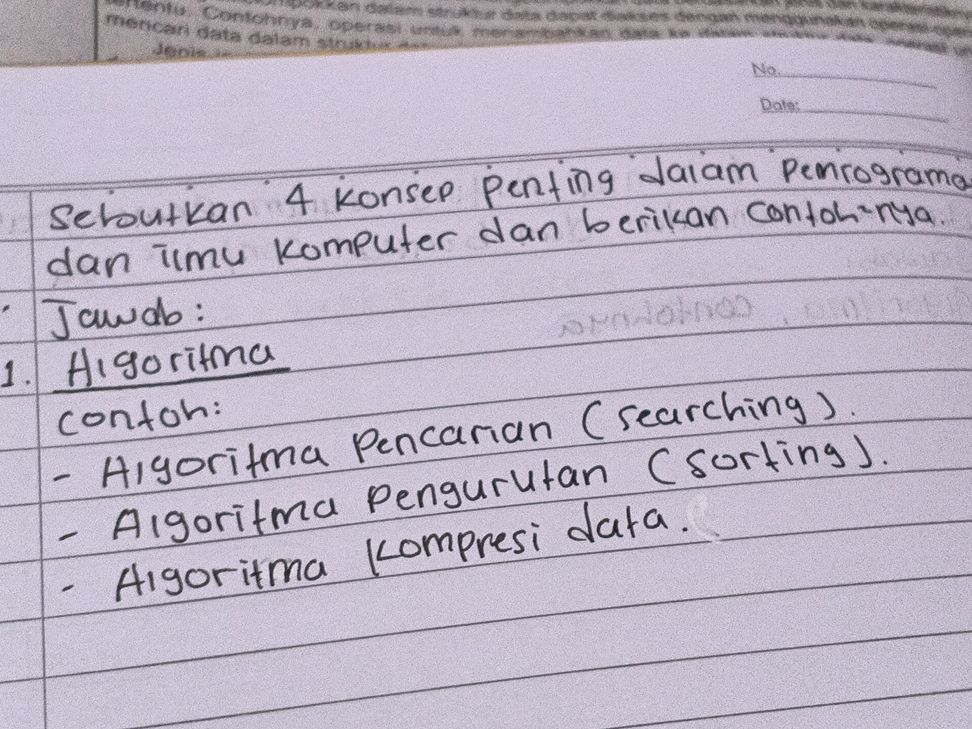 tertentu. Contohnya, operasi untuk menambahkan data ke dalam struktur data, operasi
mencari data dalam struktur
Jenis
No.
Date:
Sebutkan 4 konsep penting dalam Pemrograma
dan ilmu komputer dan berikan contoh-nya.
Jawab:
1. Algoritma
Contoh:
- Algoritma Pencarian (searching).
- Algoritma Pengurutan (sorting).
- Algoritma Kompresi data.